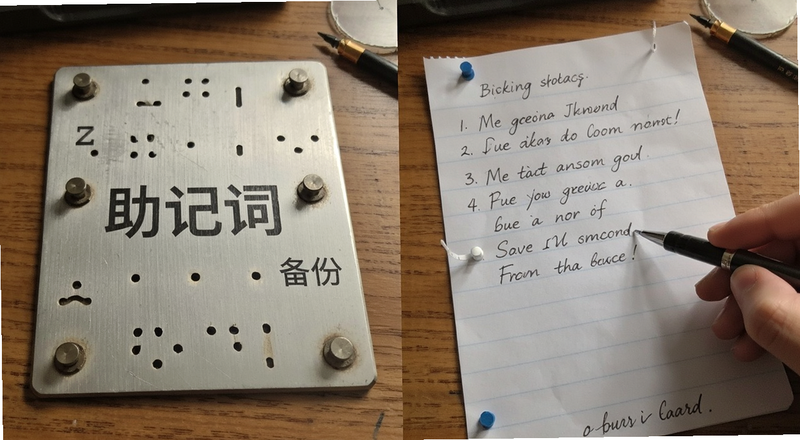 Z
助记词
备份
Bicking stotacs.
1. Me gceona Jknoond
2. Iue aikas do Coom nonst!
3. Me tact ansom goul.
4. Fue yow greeioc a.
bue a nor of
Save IU smcond
From tha beuce!
o burr i Caard.